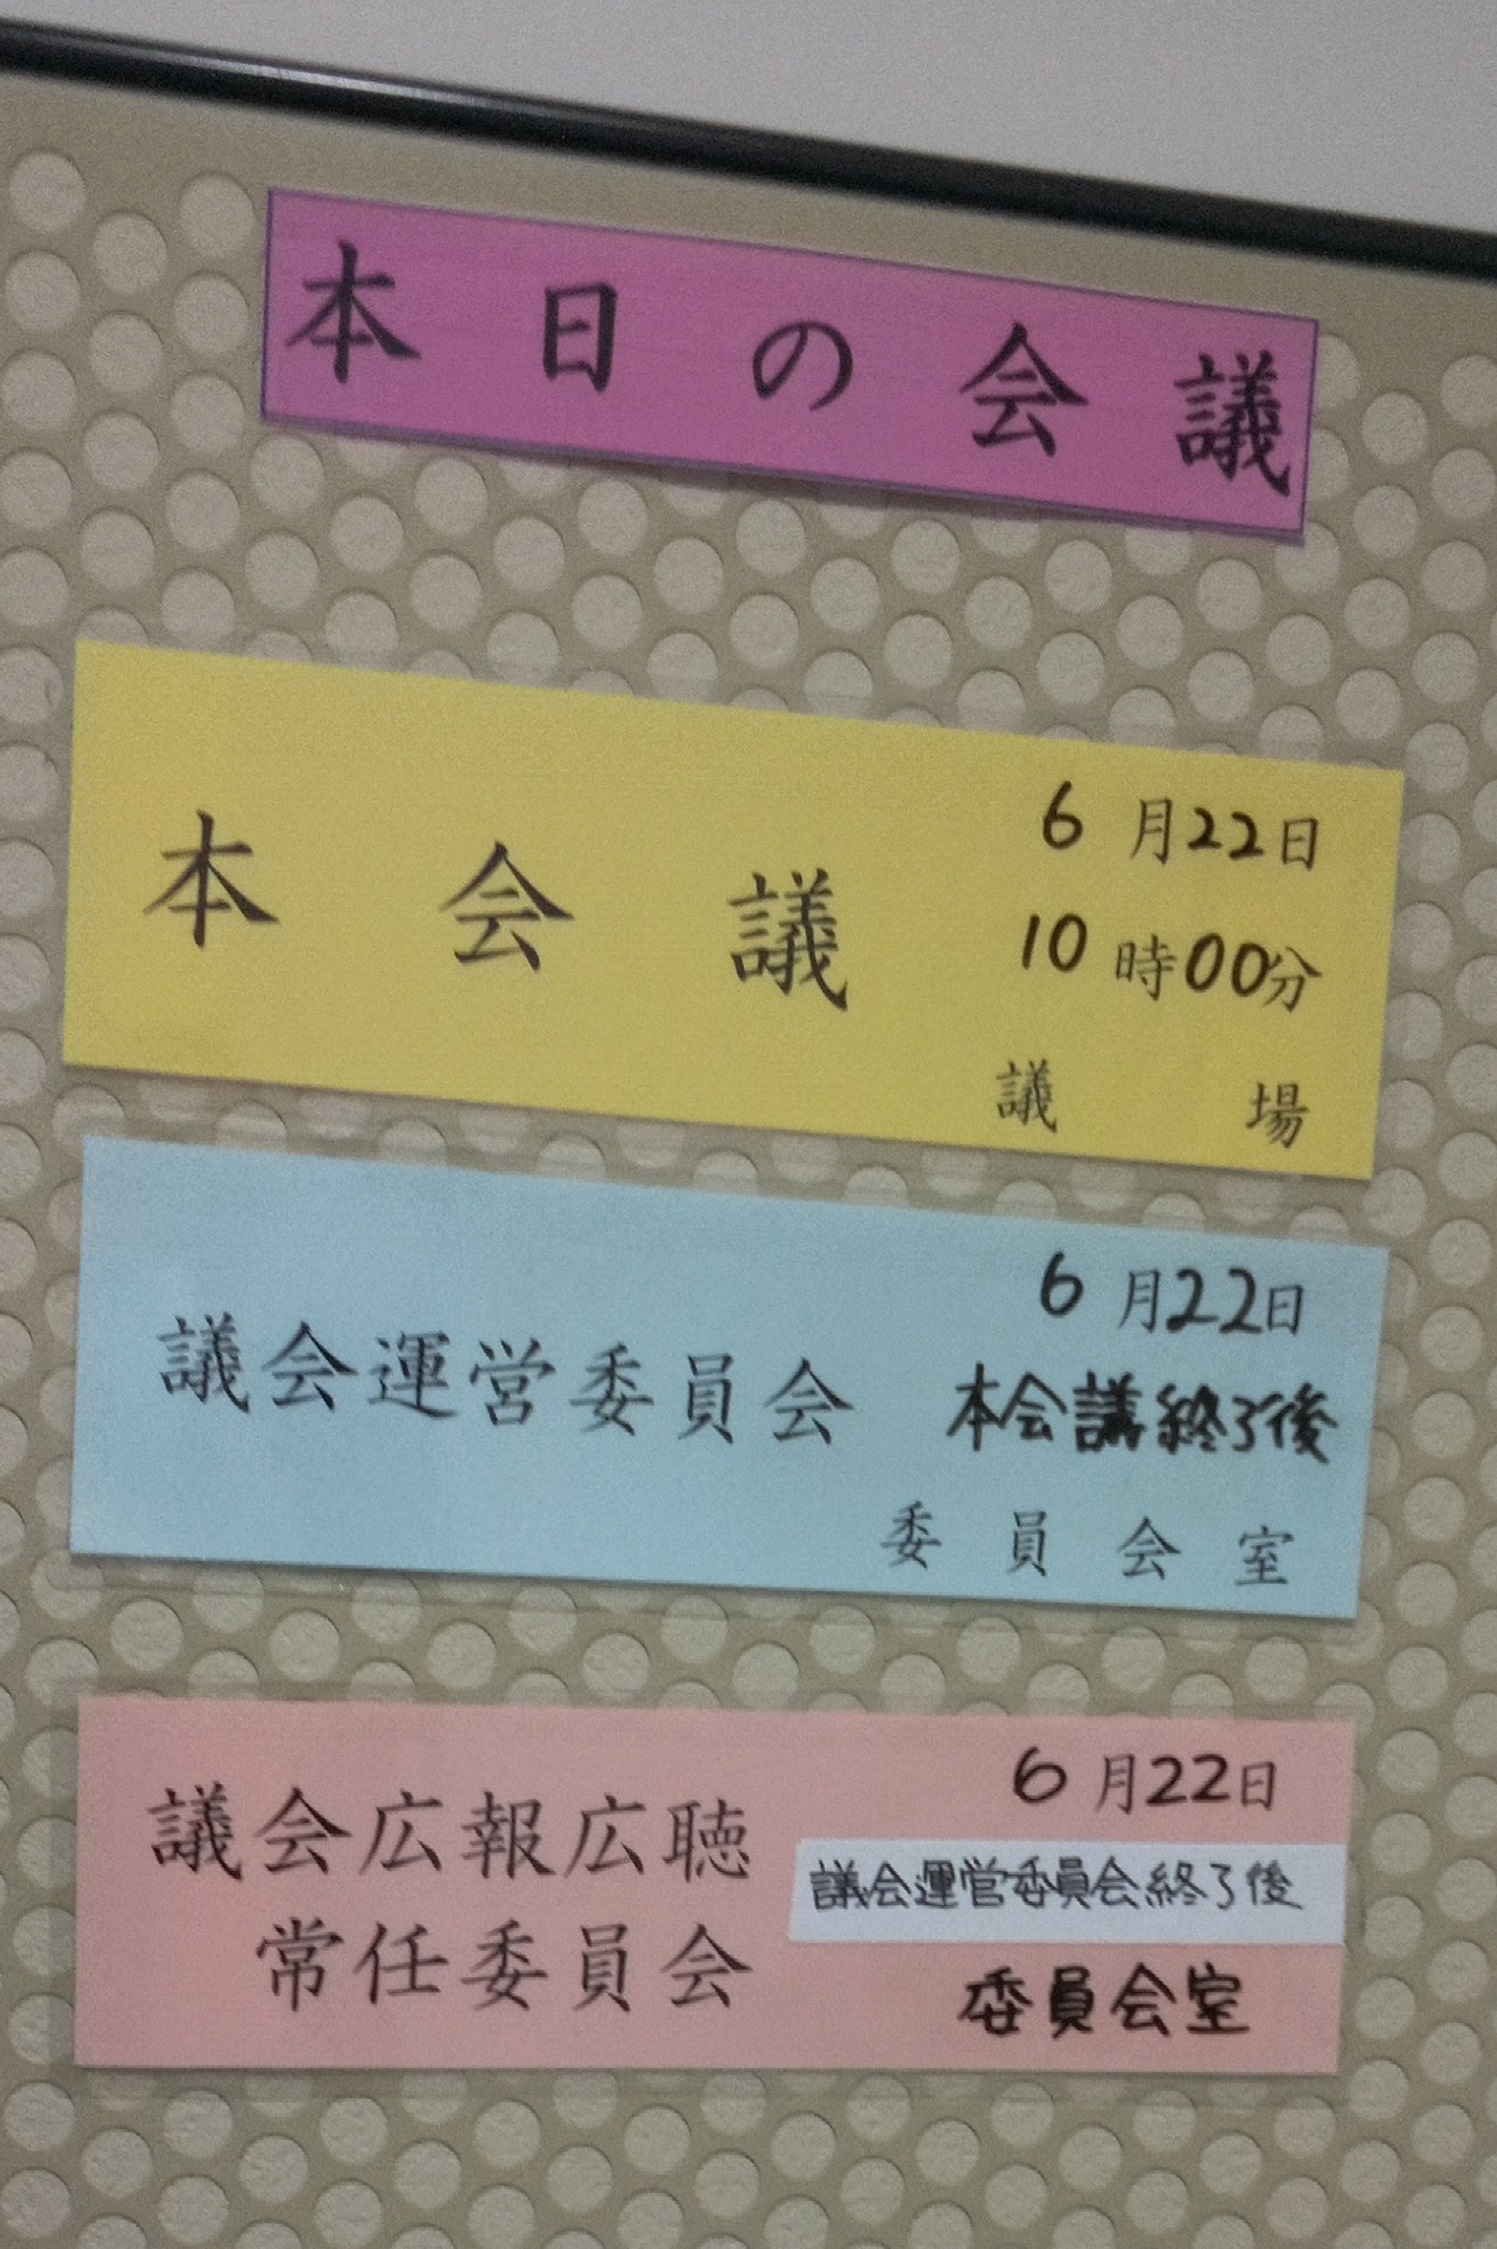 本日の会議
本会議
6月22日
10時00分
議場
議会運営委員会
6月22日
本会議終了後
委員会室
議会広報広聴
常任委員会
6月22日
議会運営委員会終了後
委員会室